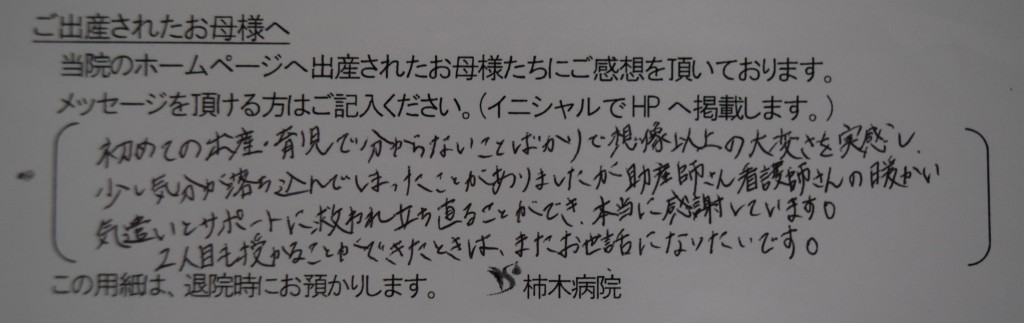 ご出産されたお母様へ
当院のホームページへ出産されたお母様たちにご感想を頂いております。
メッセージを頂ける方はご記入ください。(イニシャルでHPへ掲載します。)
初めてのお産・育児で分からないことばかりで想像以上の大変さを実感し、
少し気分が落ち込んでしまったことがありましたが助産師さん看護師さんの暖かい
気遣いとサポートに救われ立ち直ることができ、本当に感謝しています。
2人目も授かることができたときは、またお世話になりたいです。
この用紙は、退院時にお預かりします。 柿木病院